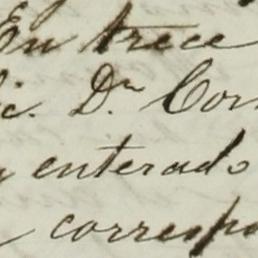 En trece
ic. Dn Cor
y enterado
correspo